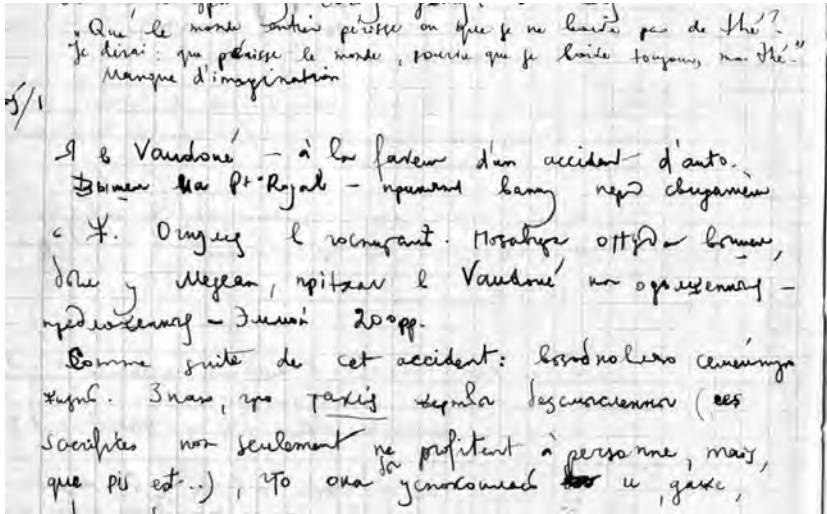 „Que le monde entier périsse ou que je ne boive pas de thé?
Je dirai: que périsse le monde, pourvu que je boive toujours mon thé."
Manque d'imagination
5/1
Я в Vaudoné — à la faveur d'un accident d'auto.
Вышел на Pt-Royal — принять ванну перед свиданием
с Ж. Оттуда в госпиталь. оттуда вышел,
был у Медеи, приехал в Vaudoné на одолженные —
предложенные — Эммой 200 фр.
Comme suite de cet accident: возобновлено семейную
жизнь. Знаю, что такая жертва бессмысленна (ces
sacrifices non seulement ne profitent à personne, mais,
que pis est...), что она бы успокоилась и, даже,